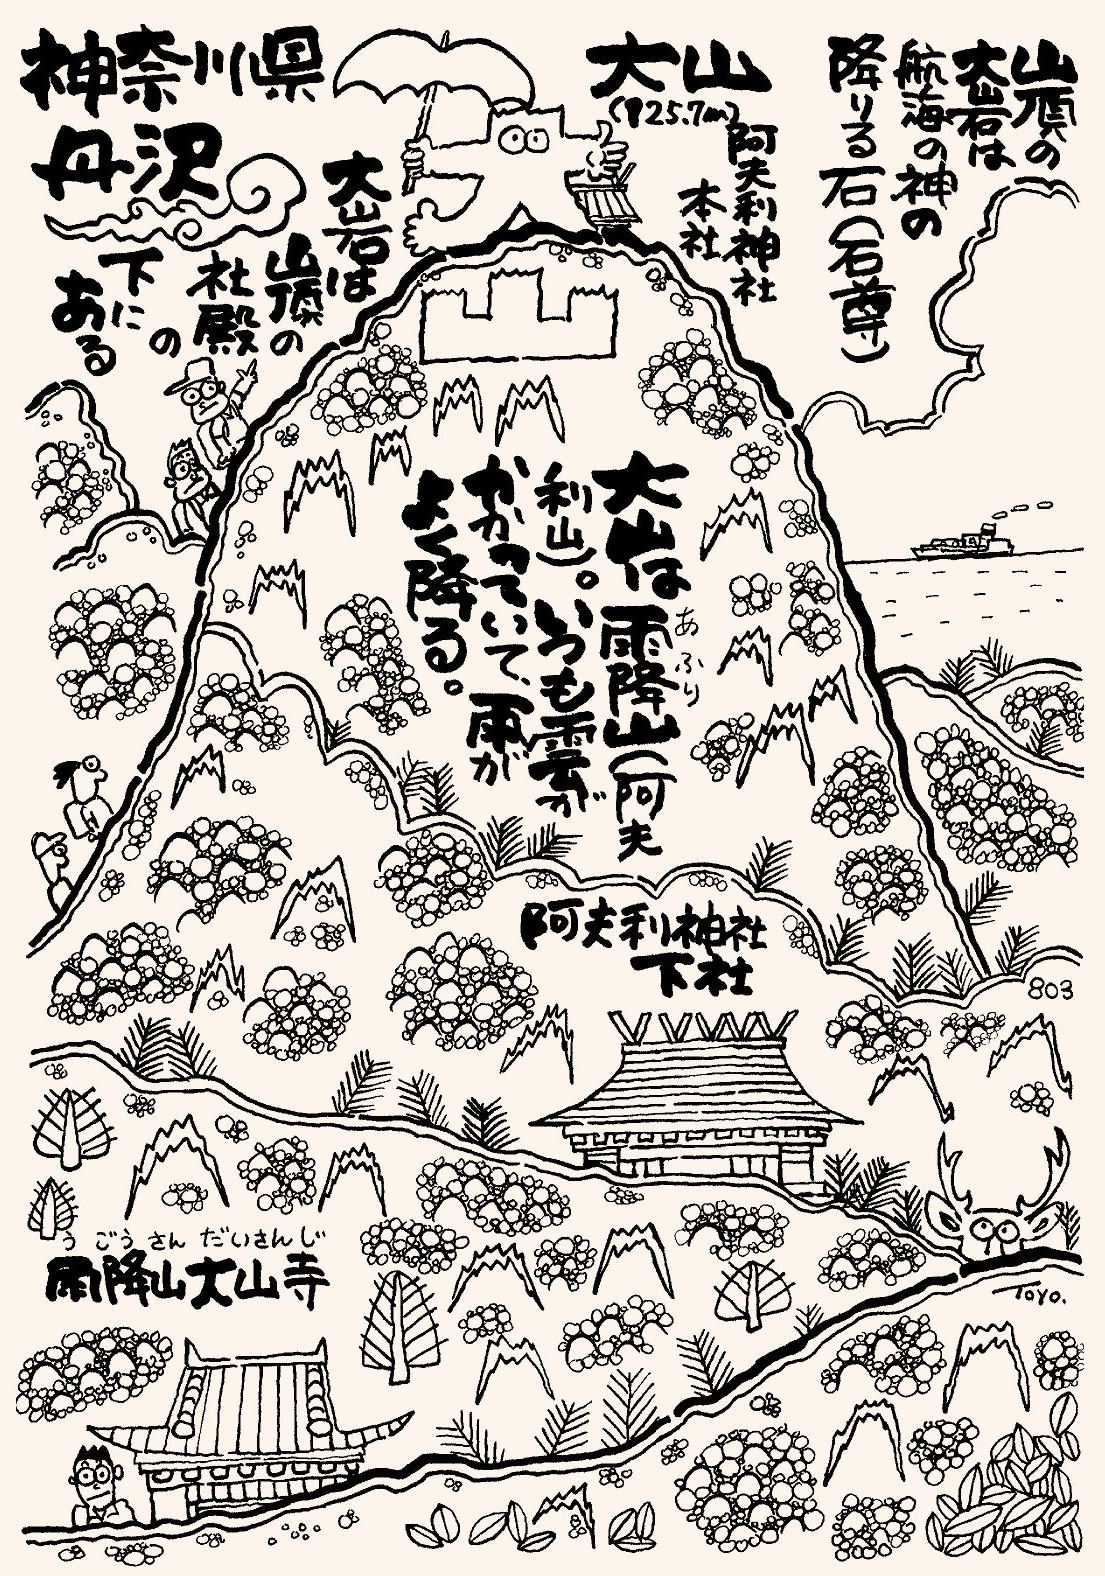 神奈川県
丹沢
大山
阿夫利神社
本社
山頂の
大岩は
航海の神の
降りる石(石尊)
大岩は
山頂の
社殿の
下に
ある
大山は雨降山(阿夫
あふり
利山)。いつも雲が
かかっていて、雨が
よく降る。
阿夫利神社
下社
803
うごうさん だいさんじ
雨降山大山寺
TOYO.